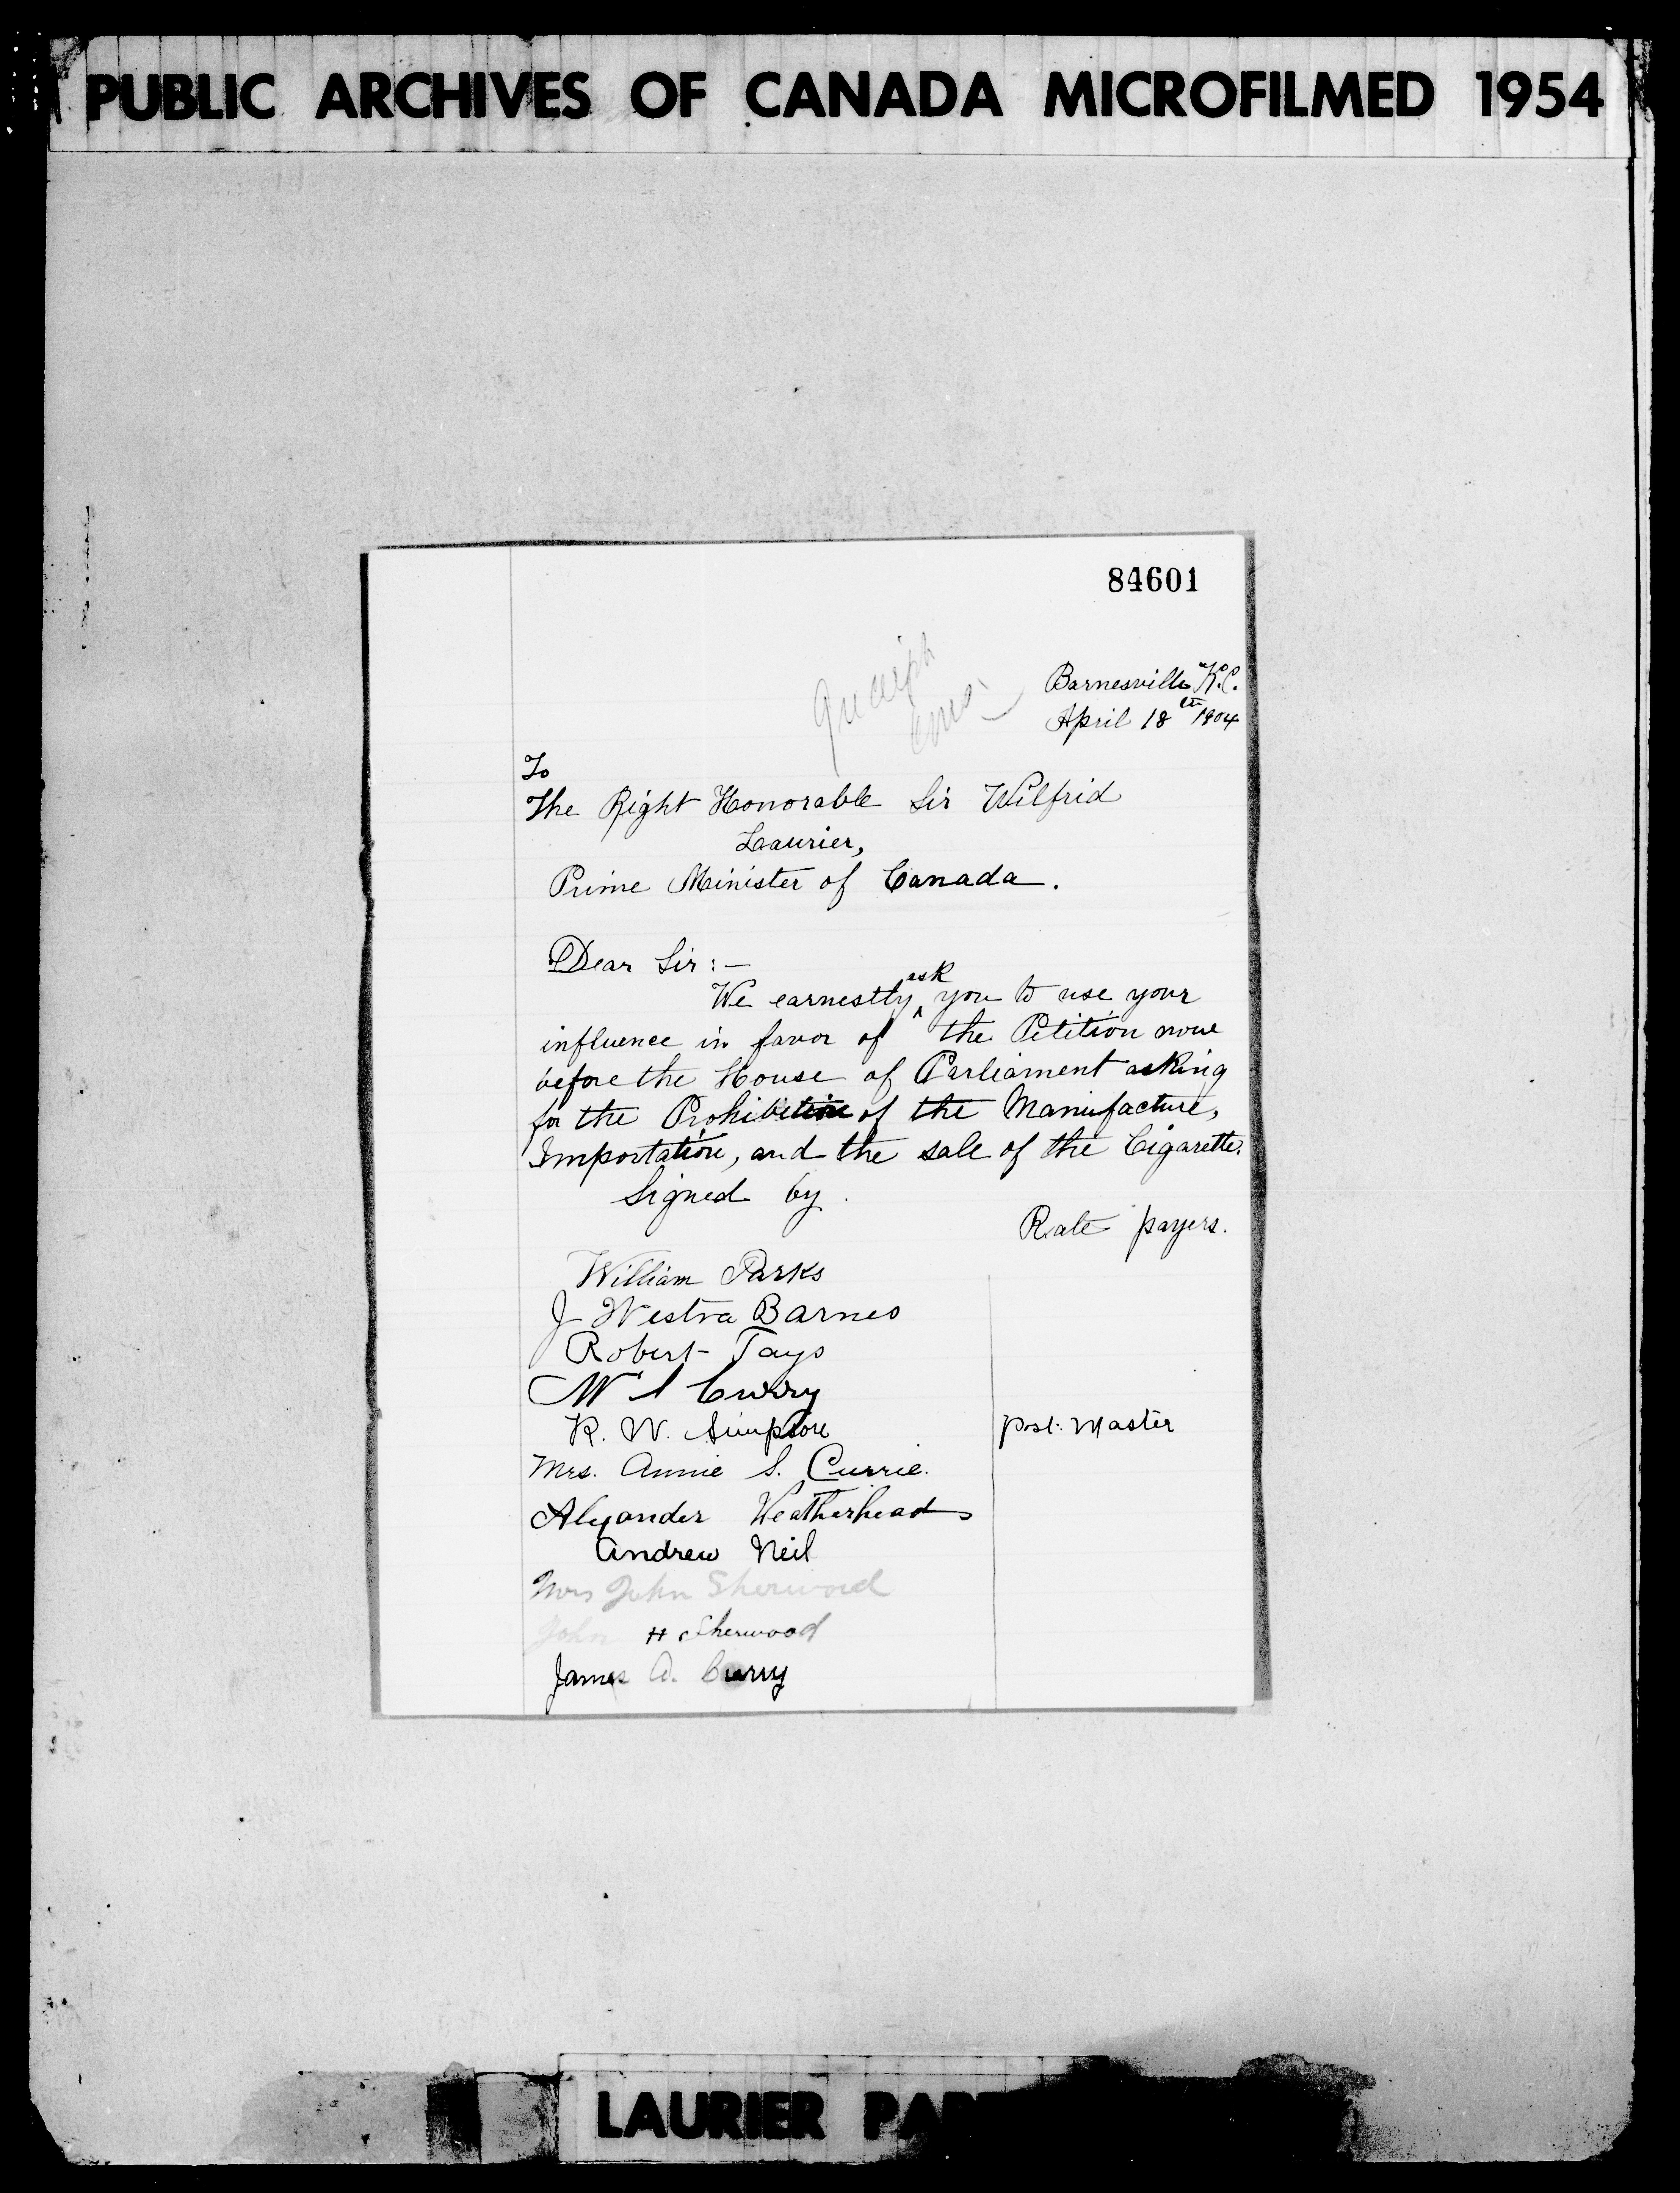 PUBLIC ARCHIVES OF CANADA MICROFILMED 1954
84601
Barnesville K.C.
April 18th 1904
To
The Right Honorable Sir Wilfrid
Laurier,
Prime Minister of Canada.
Dear Sir:-
We earnestly ask you to use your
influence in favor of the Petition now
before the House of Parliament asking
for the Prohibition of the Manufacture,
Importation, and the sale of the Cigarette.
Signed by.
Rate payers.
William Parks
J Westra Barnes
Robert Tays
W S Curry
R. W. Simpson Post Master
Mrs. Annie S. Currie.
Alexander Weatherhead
Andrew Neil
Mrs John Sherwood
John H Sherwood
James A. Curry
LAURIER PAP